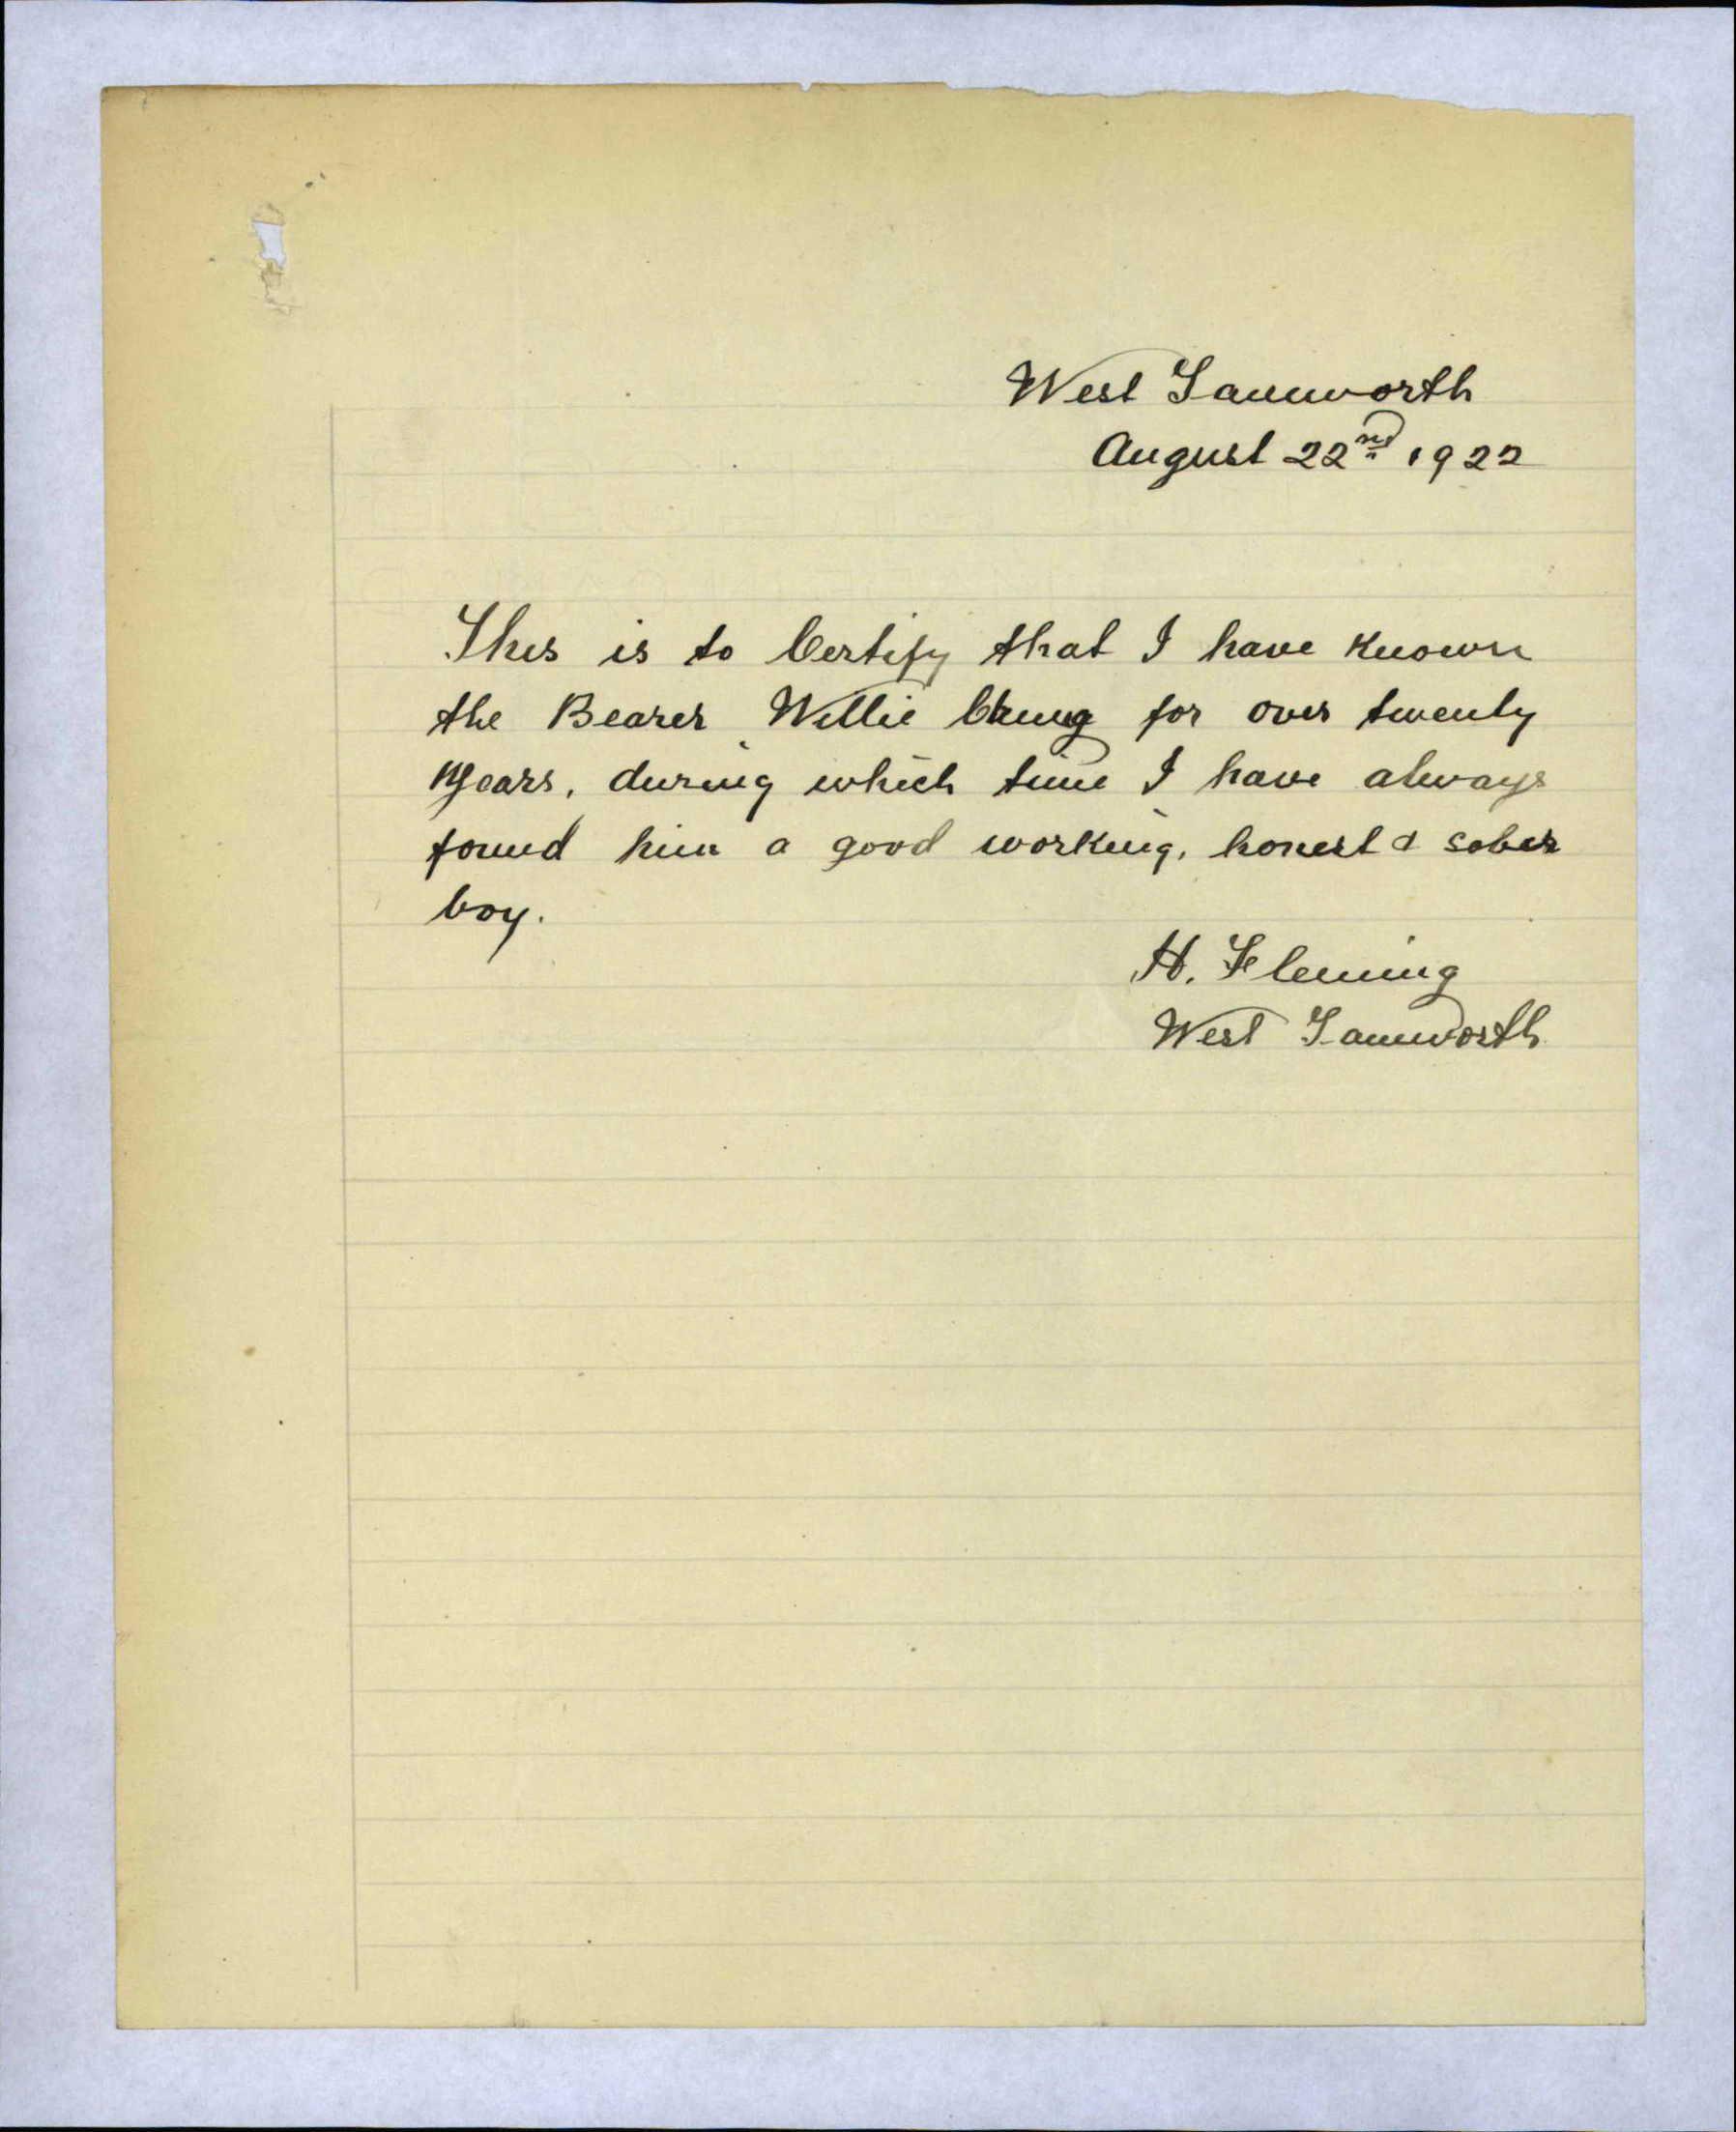 West Tamworth
August 22nd 1922
This is to Certify that I have known
the Bearer Willie Chung for over twenty
years, during which time I have always
found him a good working, honest & sober
boy.
H. Fleming
West Tamworth